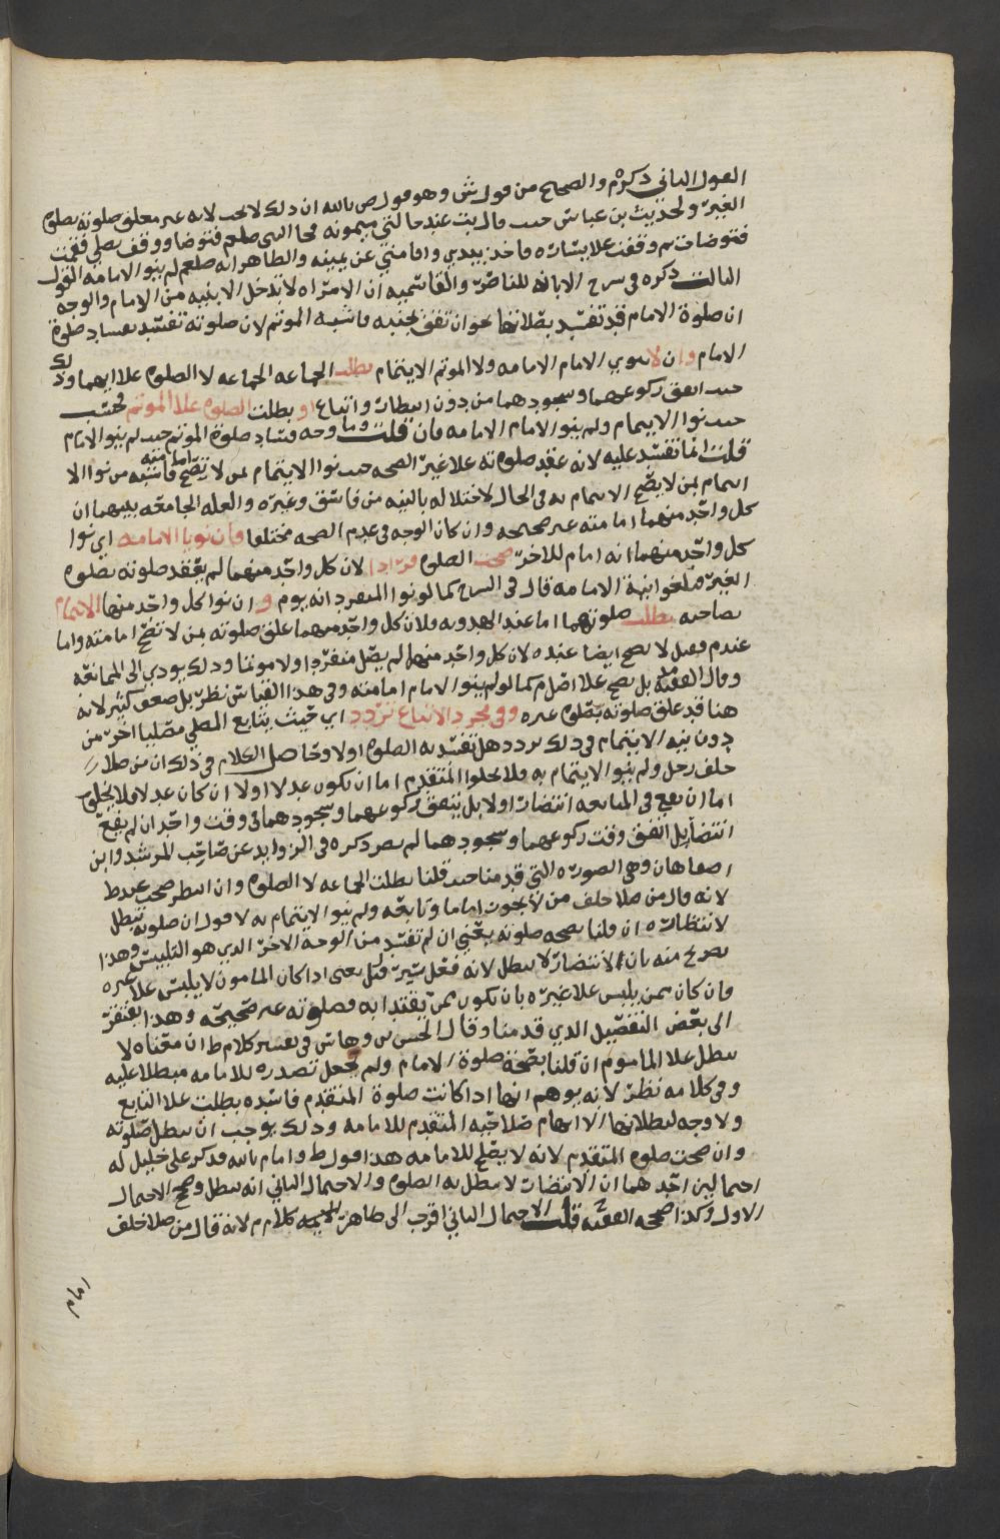 القول الثاني ذكره م والصحيح من قول ش وهو قول ص بالله ان ذلك لا يجب لانه غير معلق صلوته بصلوة
الغير ولحديث بن عباس حيث قال بت عند خالتي ميمونه فجا النبي صلعم فتوضا ووقف يصلي فقمت
فتوضات ثم وقفت علا يساره فاخذ بيدي واقامني عن يمينه والظاهر انه صلعم لم ينو الامامه القول
الثالث ذكره في شرح الابانه للناصر والقاسميه ان الامراه لا تدخل الا بنيه من الامام والوجه
ان صلوة الامام قد تفسد بصلاتها نحو ان تقف بجنبه فاشبه الموتم لان صلوته تفسد بفساد صلوة
الامام وان لا ينوي الامام الامامه ولا الموتم الايتمام بطلت الجماعه الجماعه لا الصلوه علا ايهما وذلك
حيث اتفق ركوعهما وسجودهما من دون انتظار واتباع او بطلت الصلوه علا الموتم فحسب
حيث نوا الايتمام ولم ينو الامام الامامه فان قلت وما وجه فساد صلوة الموتم حيث لم ينو الامام
قلت انما تفسد عليه لانه عقد صلوته علا غير الصحه حيث نوا الايتمام لمن لا تصح امامته فاشبه من نوا الا
يتمام بمن لا يصح الايتمام به في الحال لاختلاله بالنيه من فاسق وغيره والعله الجامعه بينهما ان
كل واحد منهما امامته غير صحيحه وان كان الوجه في عدم الصحه مختلفا فان نويا الامامه اي نوا
كل واحد منهما انه امام للاخر صحت الصلوه فرادا لان كل واحد منهما لم يعقد صلوته بصلوه
الغير فلغوا بنية الامامه قال في الشرح كما لو نوا المنفرد انه يوم و ان نوا كل واحد منهما الايتمام
بصاحبه بطلت صلوتهما اما عند الهدويه فلان كل واحد منهما علق صلوته بمن لا تصح امامته واما
عند م فقيل لا يصح ايضا عنده لان كل واحد منهما لم يصل منفردا ولا موتما وذلك يودي الى الممانعه
وقال الفقيه بل يصح علا اصل م كما لو لم ينو الامام امامته وفي هذا القياس نظر بل ضعف كثير لانه
هنا قد علق صلوته بصلوه غيره وفي مجرد الاتباع تردد اي حيث يتابع المصلي مصليا اخر من
دون نيه الايتمام في ذلك تردد هل تفسد به الصلوه او لا وحاصل الكلام في ذلك ان من صلا
خلف رجل ولم ينو الايتمام به فلا يخلوا المتقدم اما ان يكون عدلا او لا ان كان عدلا فلا يخلو
اما ان يقع في المتابعه انتضار او لا بل يتفق ركوعهما وسجودهما في وقت واحد ان لم يقع
انتضار بل اتفق وقت ركوعهما وسجودهما لم يضر ذكره في الزوايد عن صاحب المرشد وابن
اصفاهان وهي الصوره التي قدمنا حيث قلنا بطلت الجماعه لا الصلوه وان انتظر صحت عند ط
لانه قال من صلا خلف من لا يجوز اماما وتابعه ولم ينو الايتمام به لا قول ان صلوته تبطل
لانتظاره ان قلنا بصحه صلوته يعني ان لم تفسد من الوجه الاخر الذي هو التلبيس وهذا
تصريح منه بان الانتضار لا يبطل لانه فعل يسير قيل يعني اذا كان المامون لا يلبس علا غيره
وان كان ممن يلبس علا غيره بان يكون ممن يقتدا به فصلوته غير صحيحه وهذا يفتقر
الى بعض التفصيل الذي قدمنا وقال الحسن س وهاس في تفسير كلام ط ان معناه لا
يبطل علا الماموم ان قلنا بصحة صلوة الامام ولم يجعل تصدره للامامه مبطلا عليه
وفي كلامه نظر لانه يوهم انها اذا كانت صلوة المتقدم فاسده بطلت علا التابع
ولا وجه لبطلانها الا ايهام صلاحية المتقدم للامامه وذلك يوجب ان يبطل صلوته
وان صحت صلوه المتقدم لانه لا يصلح للامامه هذا قول ط واما م بالله فذكر على خليل له
احتمالين احدهما ان الانتضار لا يبطل به الصلوه والاحتمال الثاني انه يبطل وصحح الاحتمال
الاول وكذا صححه الفقيه قلت الاحتمال الثاني اقرب الى ظاهر كلام م لانه قال من صلا خلف
امام